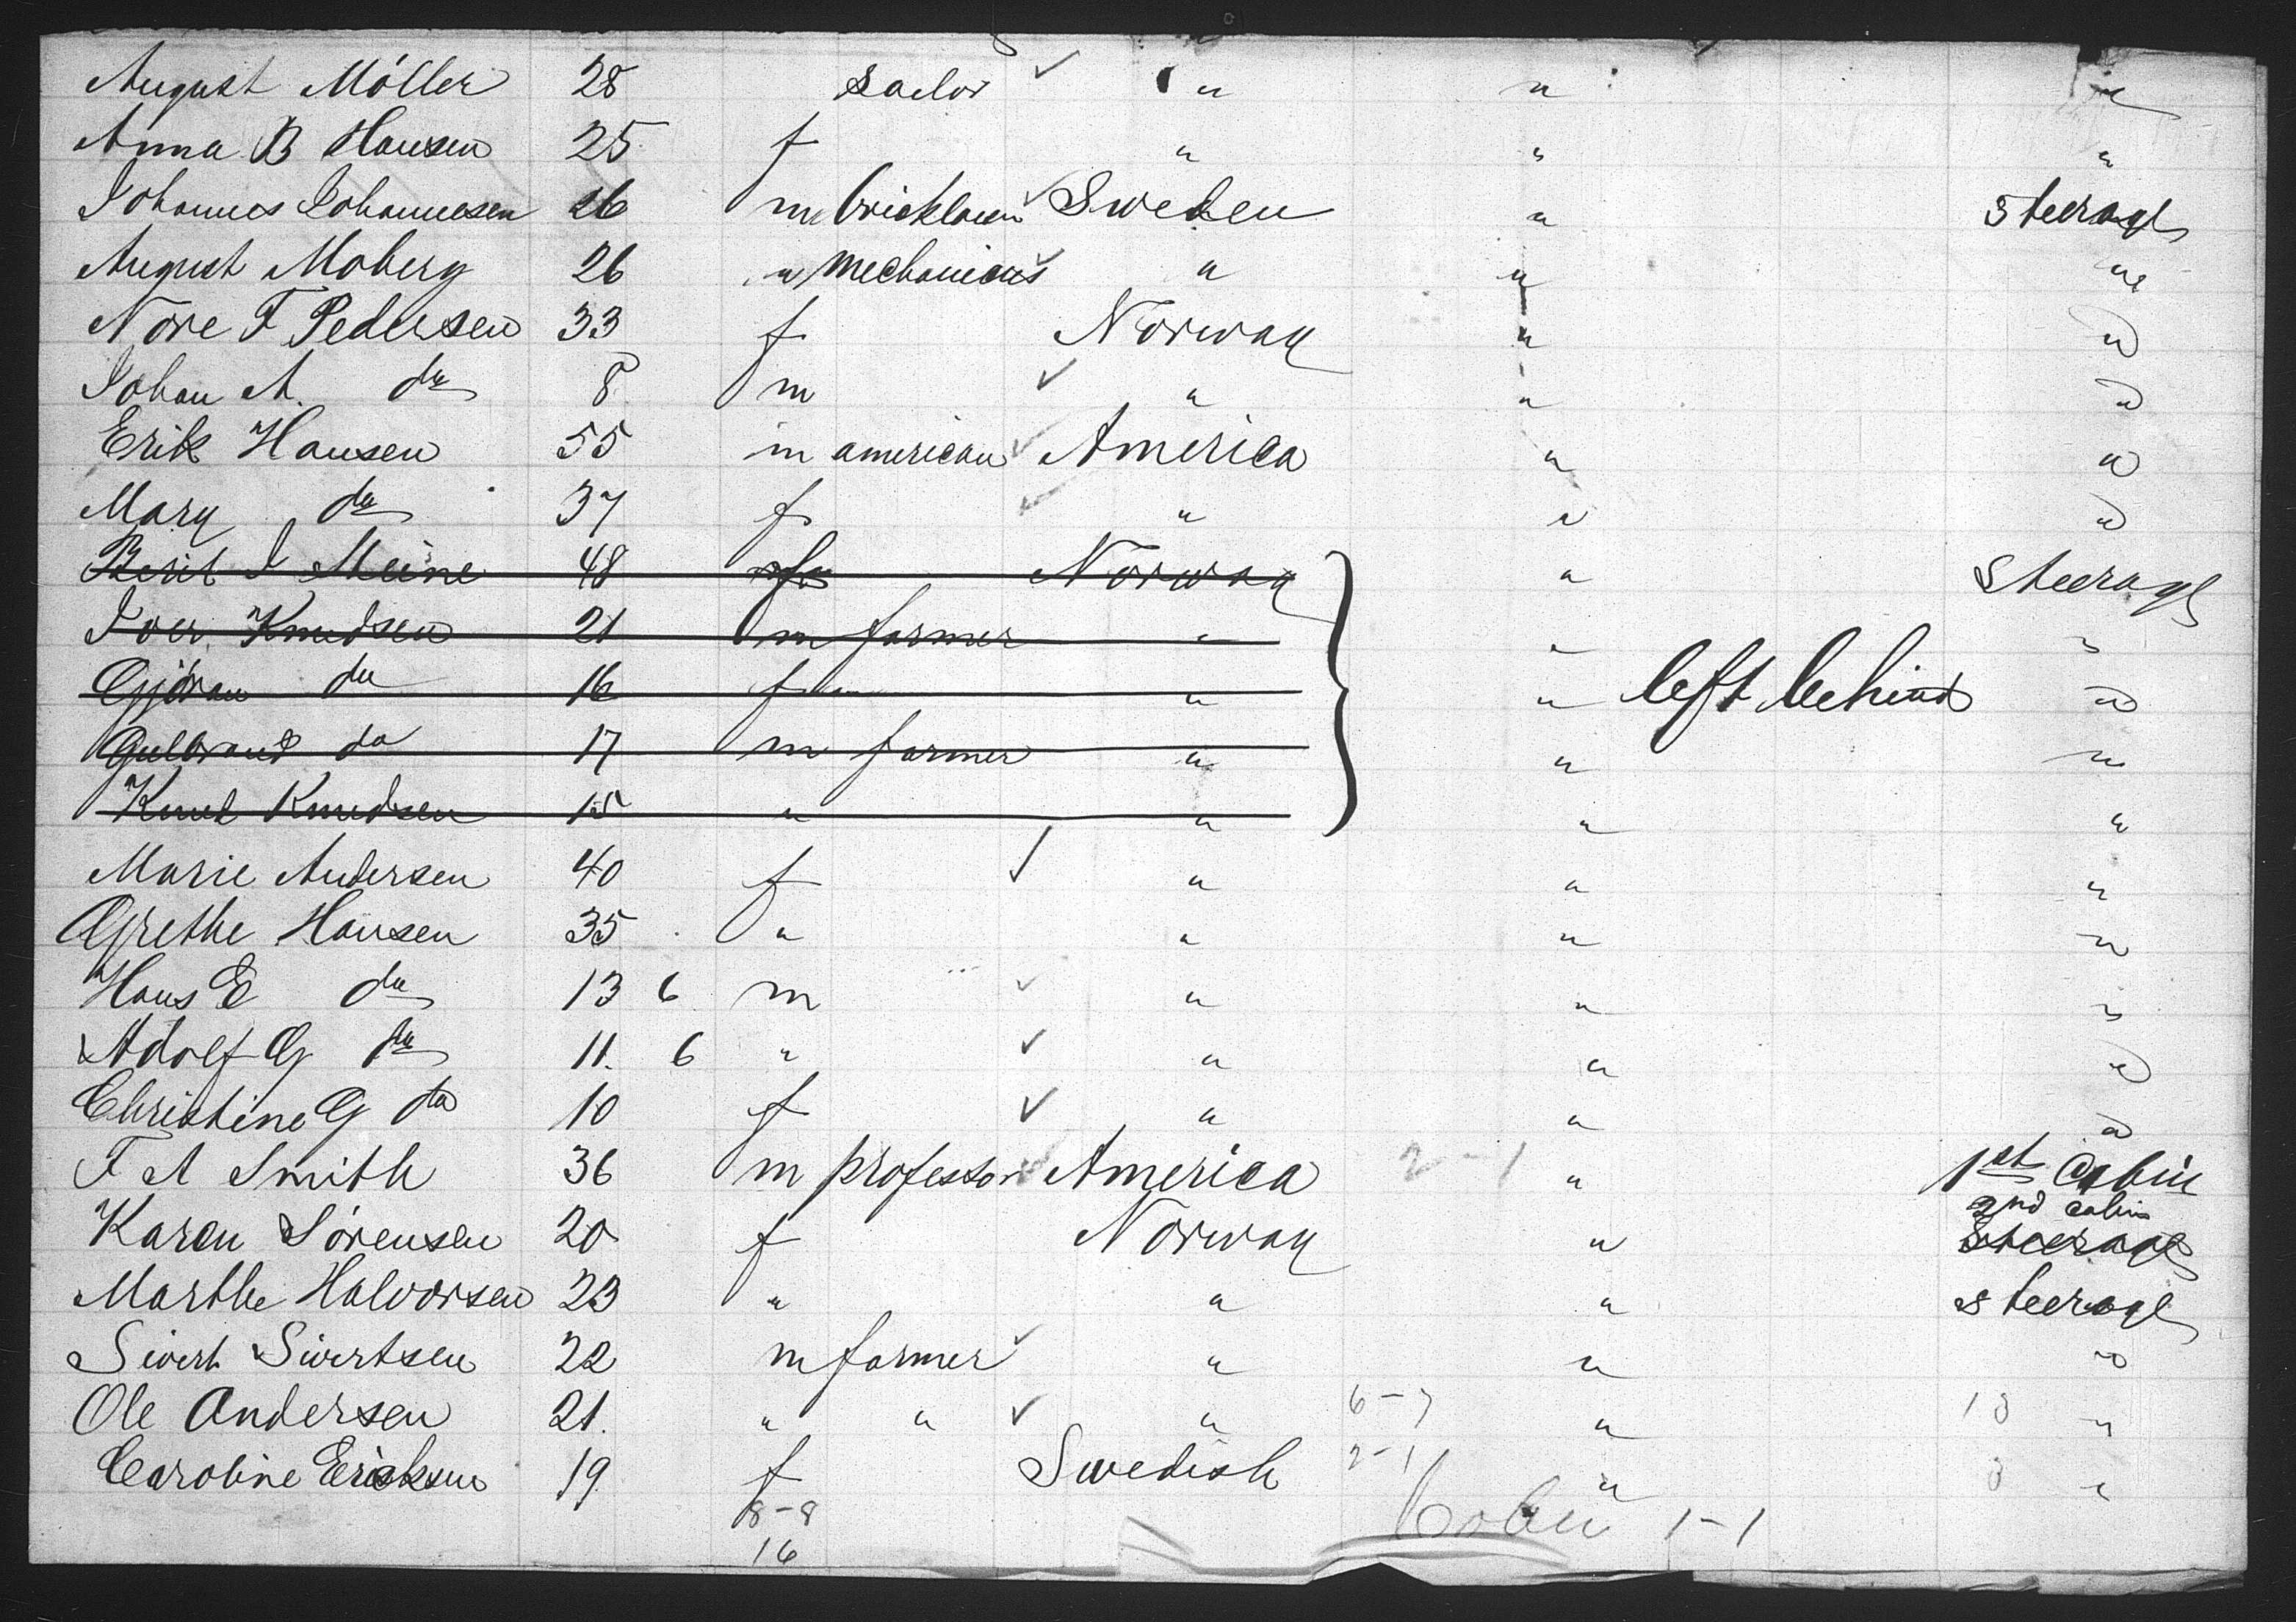 August Móller 28 sailor ✓ " " "
Anna B Hansen 25 f " " "
Johannes Johannesen 26 m bricklayer ✓ Sweden " steerage
August Moberg 26 " mechanicus ✓ " " "
Nore F Pedersen 33 f Norway " "
Johan A. do 8 m ✓ " " "
Erik Hansen 55 m american ✓ America " "
Mary do 37 f ✓ " " "
Berit I Meine 48 f Norway " steerage
Iver Knudsen 21 m farmer " " "
Gjöran do 16 f " " left behind "
Gulbrand do 17 m farmer " " "
Knud Knudsen 15 " " " "
Marie Andersen 40 f ✓ " " "
Grethe Hansen 35 " " " "
Hans E do 13 6 m ✓ " " "
Adolf G do 11. 6 " ✓ " " "
Christine G do 10 f ✓ " " "
F A Smith 36 m professor ✓ America 2-1 " 1st Cabin
2nd cabin
Karen Sørensen 20 f Norway " steerage
Marthe Halvorsen 23 " " " steerage
Sivert Sivertsen 22 m farmer ✓ " " "
Ole Andersen 21. " " ✓ " 6-7 " 13 "
Caroline Ericksen 19 f Swedish 2-1 " 3 "
8-8 Cabin 1-1
16